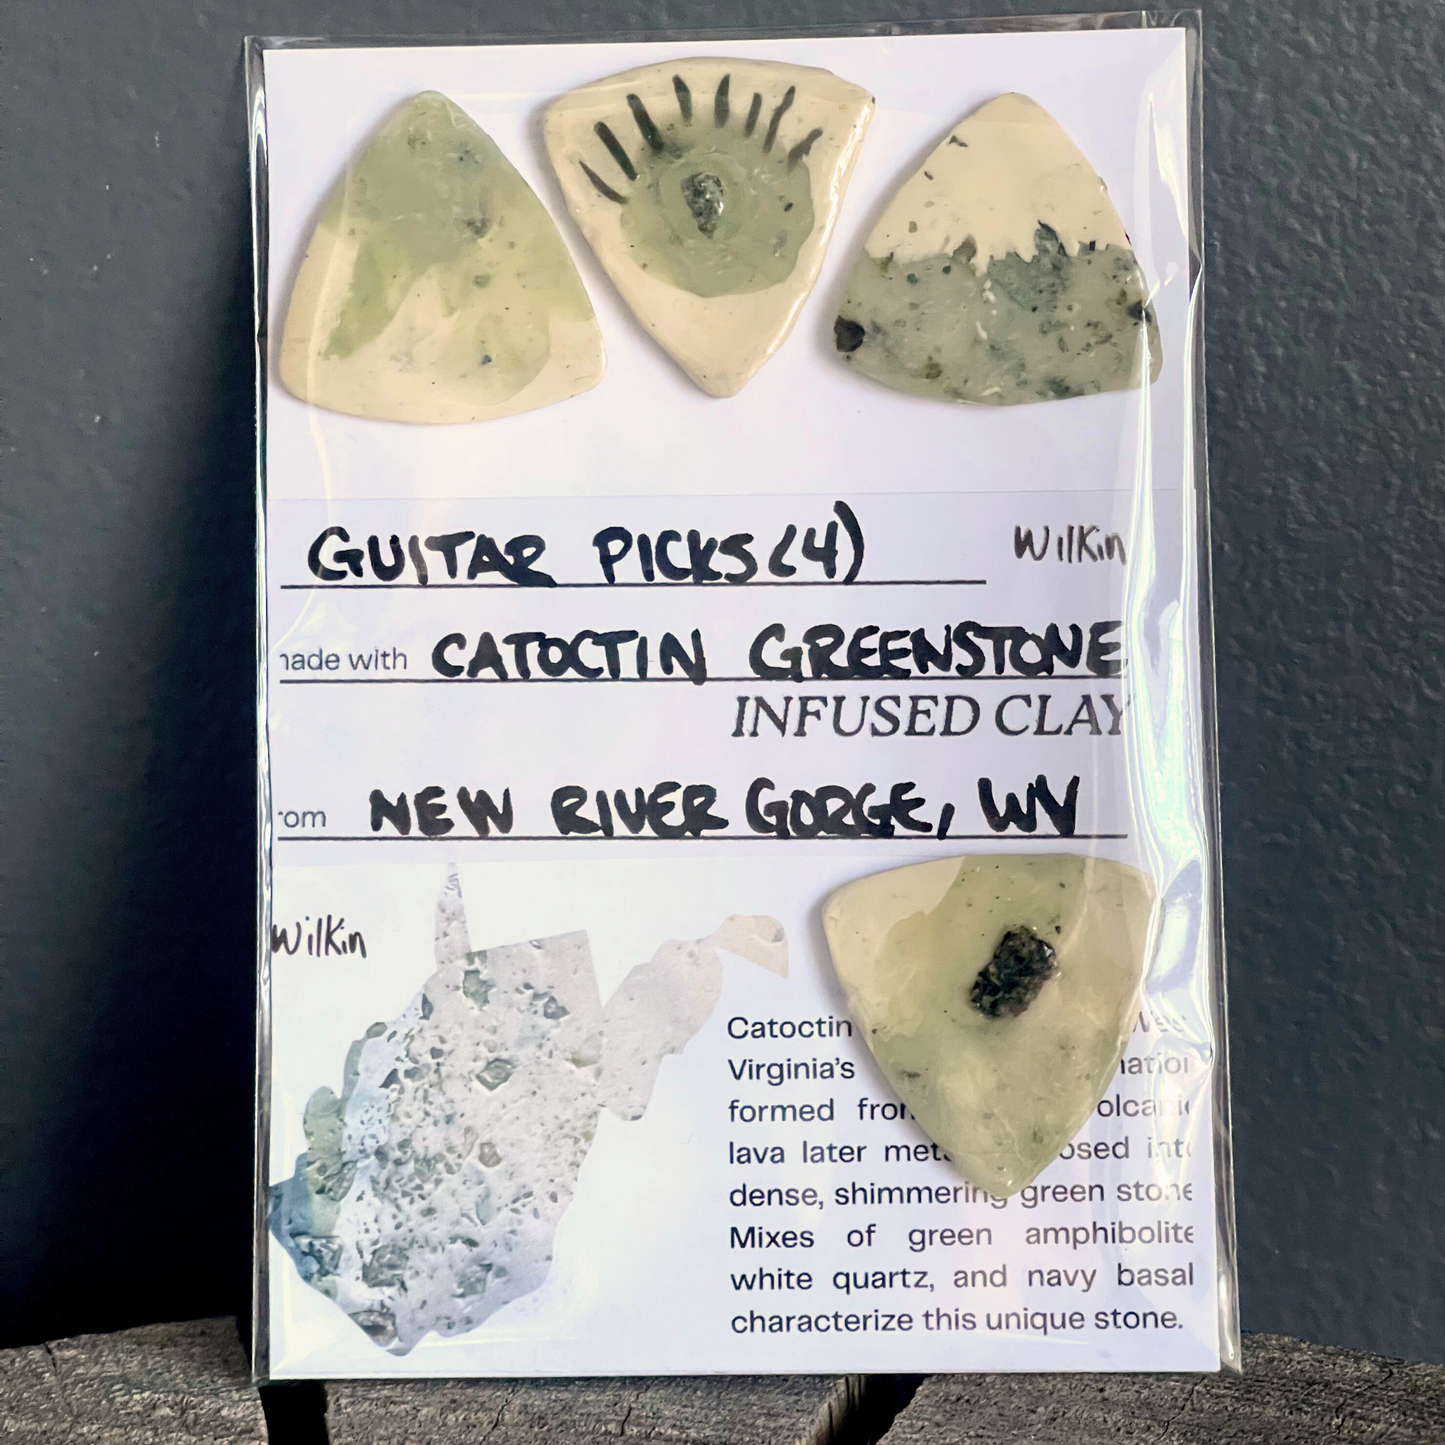 GUITAR PICKS (4)
Wilkin
made with CATOCTIN GREENSTONE
INFUSED CLAY
from NEW RIVER GORGE, WV
Wilkin
Catoctin
Virginia's
formed from
lava later into
dense, shimmering green stone
Mixes of green amphibolite
white quartz, and navy basal
characterize this unique stone.